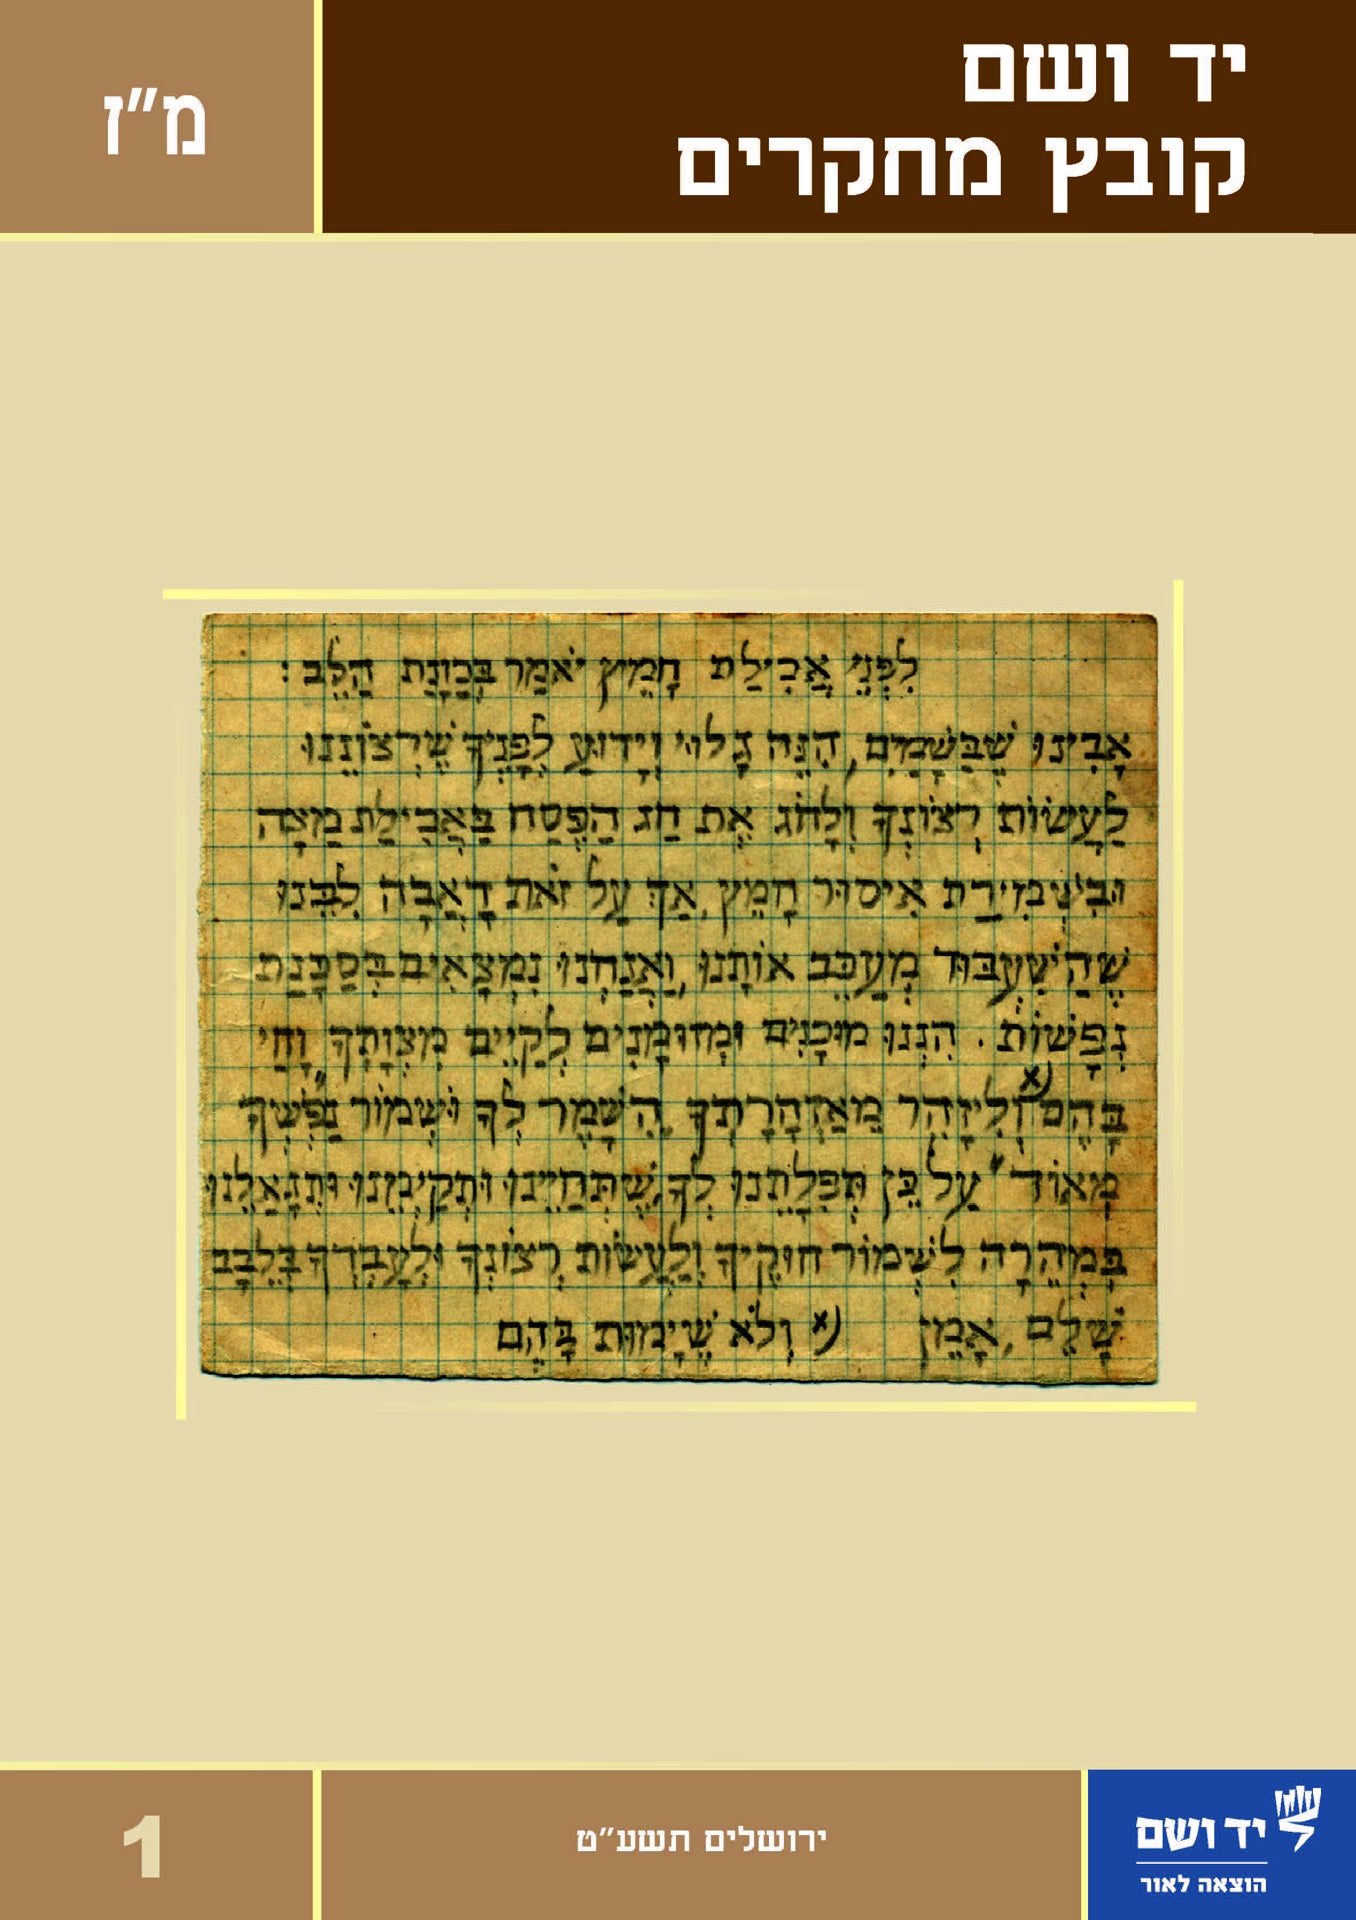 יד ושם
קובץ מחקרים
מ"ז
לִפְנֵי אֲכִילַת חָמֵץ יֹאמַר בְּכַוָנַת הַלֵב:
אָבִינוּ שֶׁבַּשָׁמַיִם, הִנֵה גָלוּי וְיָדוּעַ לְפָנֶיךָ שֶׁרְצוֹנֵנוּ
לַעֲשׂוֹת רְצוֹנְךָ וְלָחֹג אֶת חַג הַפֶּסַח בַּאֲכִילַת מַצָה
וּבִשְׁמִירַת אִיסוּר חָמֵץ, אַךְ עַל זֹאת דָאֲבָה לִבֵּנוּ
שֶׁהַשִׁעְבּוּד מְעַכֵּב אוֹתָנוּ, וַאֲנַחְנוּ נִמְצָאִים בְּסַכָּנַת
נְפָשׁוֹת. הִנְנוּ מוּכָנִים וּמְזוּמָנִים לְקַיֵים מִצְוָתְךָ "וָחַי
בָּהֶם" x) וְלִיזָהֵר מֵאַזְהָרָתְךָ "הִשָׁמֶר לְךָ וּשְׁמוֹר נַפְשְׁךָ
מְאוֹד" עַל כֵּן תְּפִלָתֵנוּ לְךָ, שֶׁתְּחַיֵינוּ וּתְקַיְמֵנוּ וְתִגְאָלֵנוּ
בִּמְהֵרָה לִשְׁמוֹר חוּקֶיךָ וְלַעֲשׂוֹת רְצוֹנְךָ וּלְעָבְדְךָ בְּלֵבָב
שָׁלֵם, אָמֵן x) וְלֹא שֶׁיָמוּת בָּהֶם
יד ושם
הוצאה לאור
ירושלים תשע"ט
1